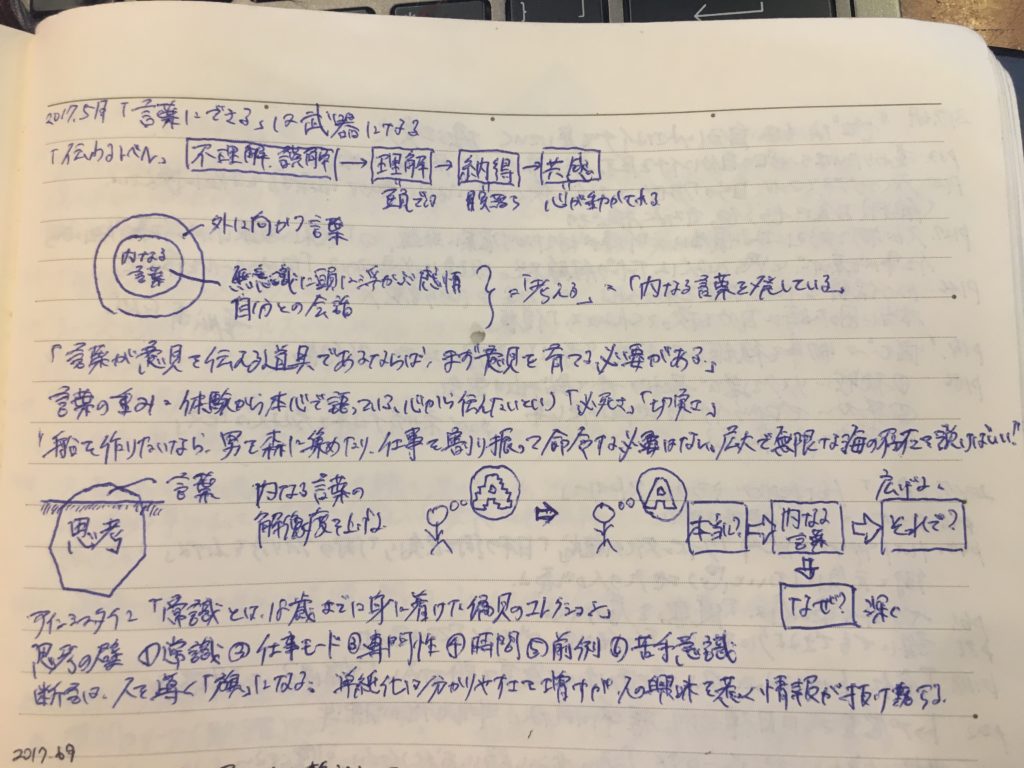 2017.5月「言葉にできる」は武器になる
「伝わるレベル」 不理解、誤解 → 理解 → 納得 → 共感
頭で 腹落ち 心が
外に向かう言葉
内なる言葉
無意識に頭に浮かぶ感情
自分との会話
=「考える」=「内なる言葉を発している」
「言葉が意見を伝える道具であるならば、まず意見を育てる必要がある」
言葉の重み=体験から本心で語っている、心から伝えたいという「必死さ」「切実さ」
"船を作りたいなら、男を森に集めたり、仕事を割り振って命令する必要はない。広大で無限な海の存在を説けばいい!"
言葉
思考
内なる言葉の
解像度を上げる
A → A
広げる
本当に? → 内なる言葉 → それで?
なぜ? 深く
アインシュタイン「常識とは、18歳までに身に着けた偏見のコレクション」
思考の壁 ①常識 ②仕事モード ③専門性 ④時間 ⑤前例 ⑥苦手意識
断言は、人を導く「旗」になる。単純化は分かりやすさを増すが、人の興味を惹く情報が抜け落ちる。
2017.6.9